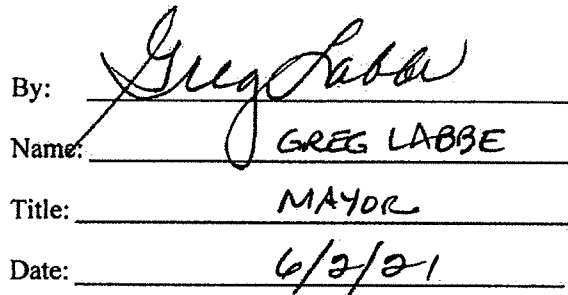 By: Greg Labbe
Name: GREG LABBE
Title: MAYOR
Date: 6/2/21